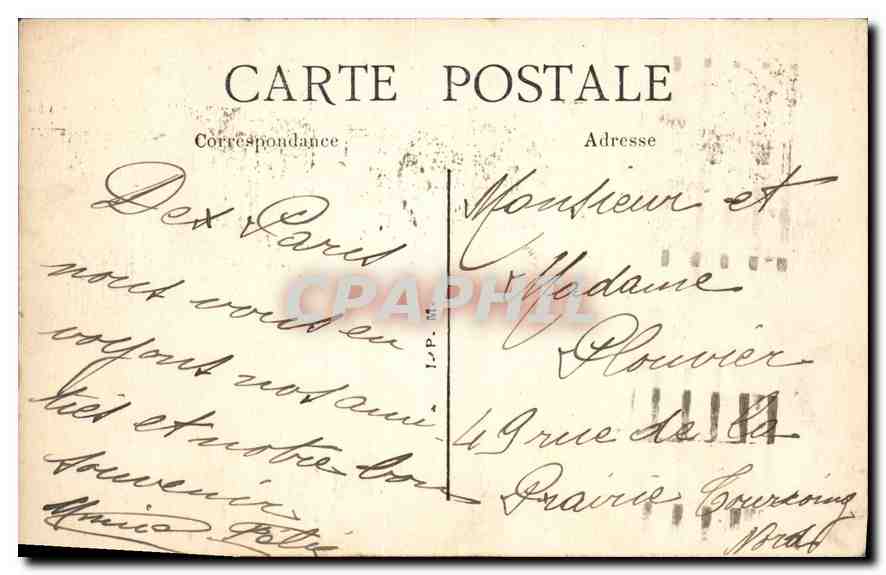 CARTE POSTALE
Correspondance
Adresse
De Paris
nous vous en
voyons nos ami-
tiés et notre bon
souvenir
I.P.M.
Monsieur et
Madame
Plouvier
49 rue de la
Prairie Tourcoing
Nord
CPAPHIL